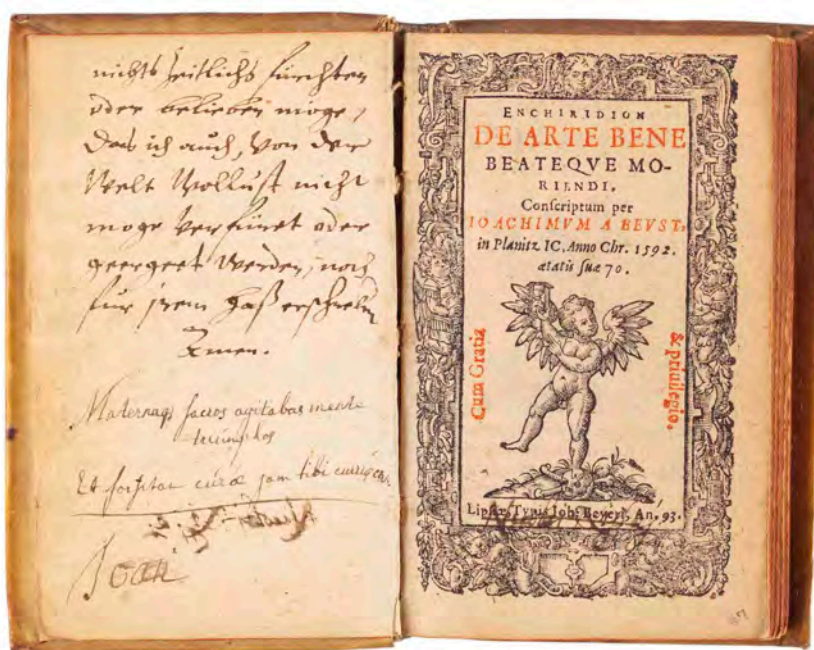 nichts zeitlichs fürchten
oder belieben möge,
Das ich auch, Von der
Welt Wollust nicht
möge Verfüret oder
geergeet Werden, noch
für jrem Haß erschrekn
Amen.
sacros agitabas mente
triumphos
Et forsitan curæ jam tibi
ENCHIRIDION
DE ARTE BENE
BEATEQVE MO-
RIENDI,
Conſcriptum per
IOACHIMVM A BEVST,
in Planitz IC. Anno Chr. 1592.
ætatis ſuæ 70.
Cum Gratia
& priuilegio.
Lipſiæ, Typis Ioh. Beyeri, An. 93.